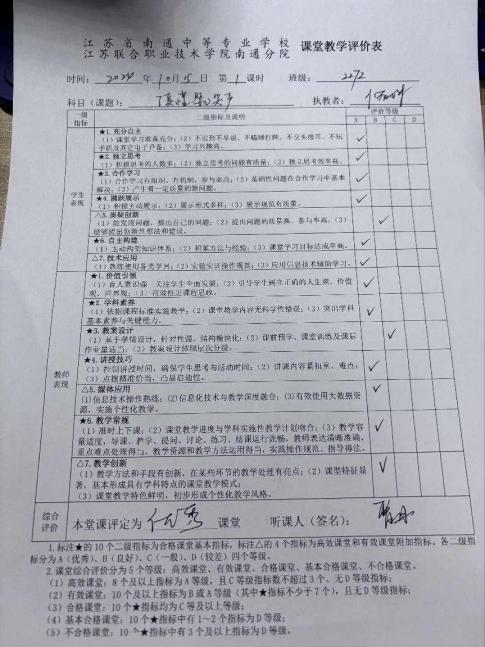 江苏省南通中等专业学校
江苏联合职业技术学院南通分院 课堂教学评价表
时间：2024 年 10 月 15 日 第 1 课时 班级：22/2
科目（课题）： 执教者：
一级指标 二级指标及说明 评价等级
A B C D
学生表现
★1.充分自主
（1）课堂学习准备充分；（2）不迟到不早退、不瞌睡打盹、不交头接耳、不玩
手机及其它电子设备；（3）学习兴趣高。
★2.独立思考
（1）积极思考的人数多；（2）独立思考的问题有质量；（3）独立思考效率高。
★3.合作学习
（1）合作学习有组织、有机制，参与率高；（2）基础性问题在合作学习中基本
解决；（3）产生有一定质量的新问题。
★4.踊跃展示
（1）积极主动展示；（2）展示形式多样；（3）展示规范有质量。
△5.质疑创新
（1）能发现问题、提出自己的问题；（2）提出问题的质量高、参与率高；（3）
能够提出创新性想法和建议。
★6.自主构建
（1）主动构架知识体系；（2）积累方法与经验；（3）课堂学习目标达成率高。
△7.技术应用
（1）熟练使用各类学具；（2）实验实训操作规范；（3）应用信息技术辅助学习。
教师表现
★1.价值引领
（1）育人意识强，关注学生全面发展；（2）引导学生树立正确的人生观、价值
观、世界观；（3）有效推进课程思政。
★2.学科素养
（1）依据课程标准实施教学；（2）课堂教学内容无科学性错误；（3）突出学科
基本素养与关键能力。
★3.教案设计
（1）基于学情设计，针对性强，结构模块化；（2）课前预学、课堂训练及课后
作业量适当；（3）教案设计体现层次分级。
★4.讲授技巧
（1）控制讲授时间，确保学生思考与活动时间；（2）讲课内容紧扣重、难点；
（3）点拨精准恰当，凸显启迪性。
△5.媒体应用
（1）信息技术操作熟练；（2）信息化技术与教学深度融合；（3）有效使用大数据资
源，实施个性化教学。
★6.教学常规
（1）准时上下课；（2）课堂教学进度与学科实施性教学计划吻合；（3）教学容
量适度，导课、讲学、提问、讨论、练习、结课运行流畅，教师表达清晰准确，
重点难点处理得当，教学资源和教学方法运用得当，实践操作规范、指导得法。
△7.教学创新
（1）教学方法和手段有创新，在某些环节的教学处理有亮点；（2）课型特征显
著，基本形成具有学科特点的课堂教学模式；
（3）课堂教学特色鲜明，初步形成个性化教学风格。
综合评价 本堂课评定为 优秀 课堂 听课人（签名）：
1.标注★的10个二级指标为合格课堂基本指标，标注△的4个指标为高效课堂和有效课堂附加指标。各二级指
标分为A（优秀）、B（良好）、C（一般）、D（较差）四个等级。
2.课堂综合评价分为5个等级：高效课堂、有效课堂、合格课堂、基本合格课堂、不合格课堂。
（1）高效课堂：8个及以上指标为A等级，且C等级指标数不超过3个、无D等级指标；
（2）有效课堂：10个及以上指标为B或A等级（其中★指标不少于7个），且无D等级指标；
（3）合格课堂：10个★指标均为C等及以上等级；
（4）基本合格课堂：10个★指标中有1~2个指标为D等级。
（5）不合格课堂：10个★指标中有3个及以上指标为D等级。